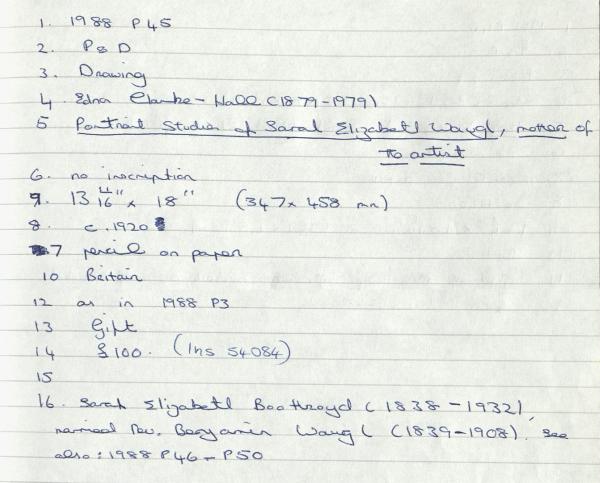 1. 1988 P45
2. P&D
3. Drawing
4. Edna Clarke-Hall (1879-1979)
5 Portrait Studies of Sarah Elizabeth Waugh, mother of
the artist
6. no inscription
9. 13 11/16" x 18" (347 x 458 mm)
8. c. 1920
7 pencil on paper
10 Britain
12 as in 1988 P3
13 Gift
14 £100. (Ins 54084)
15
16. Sarah Elizabeth Boothroyd (1838-1932),
married Rev. Benjamin Waugh (1839-1908). See
also: 1988 P46-P50